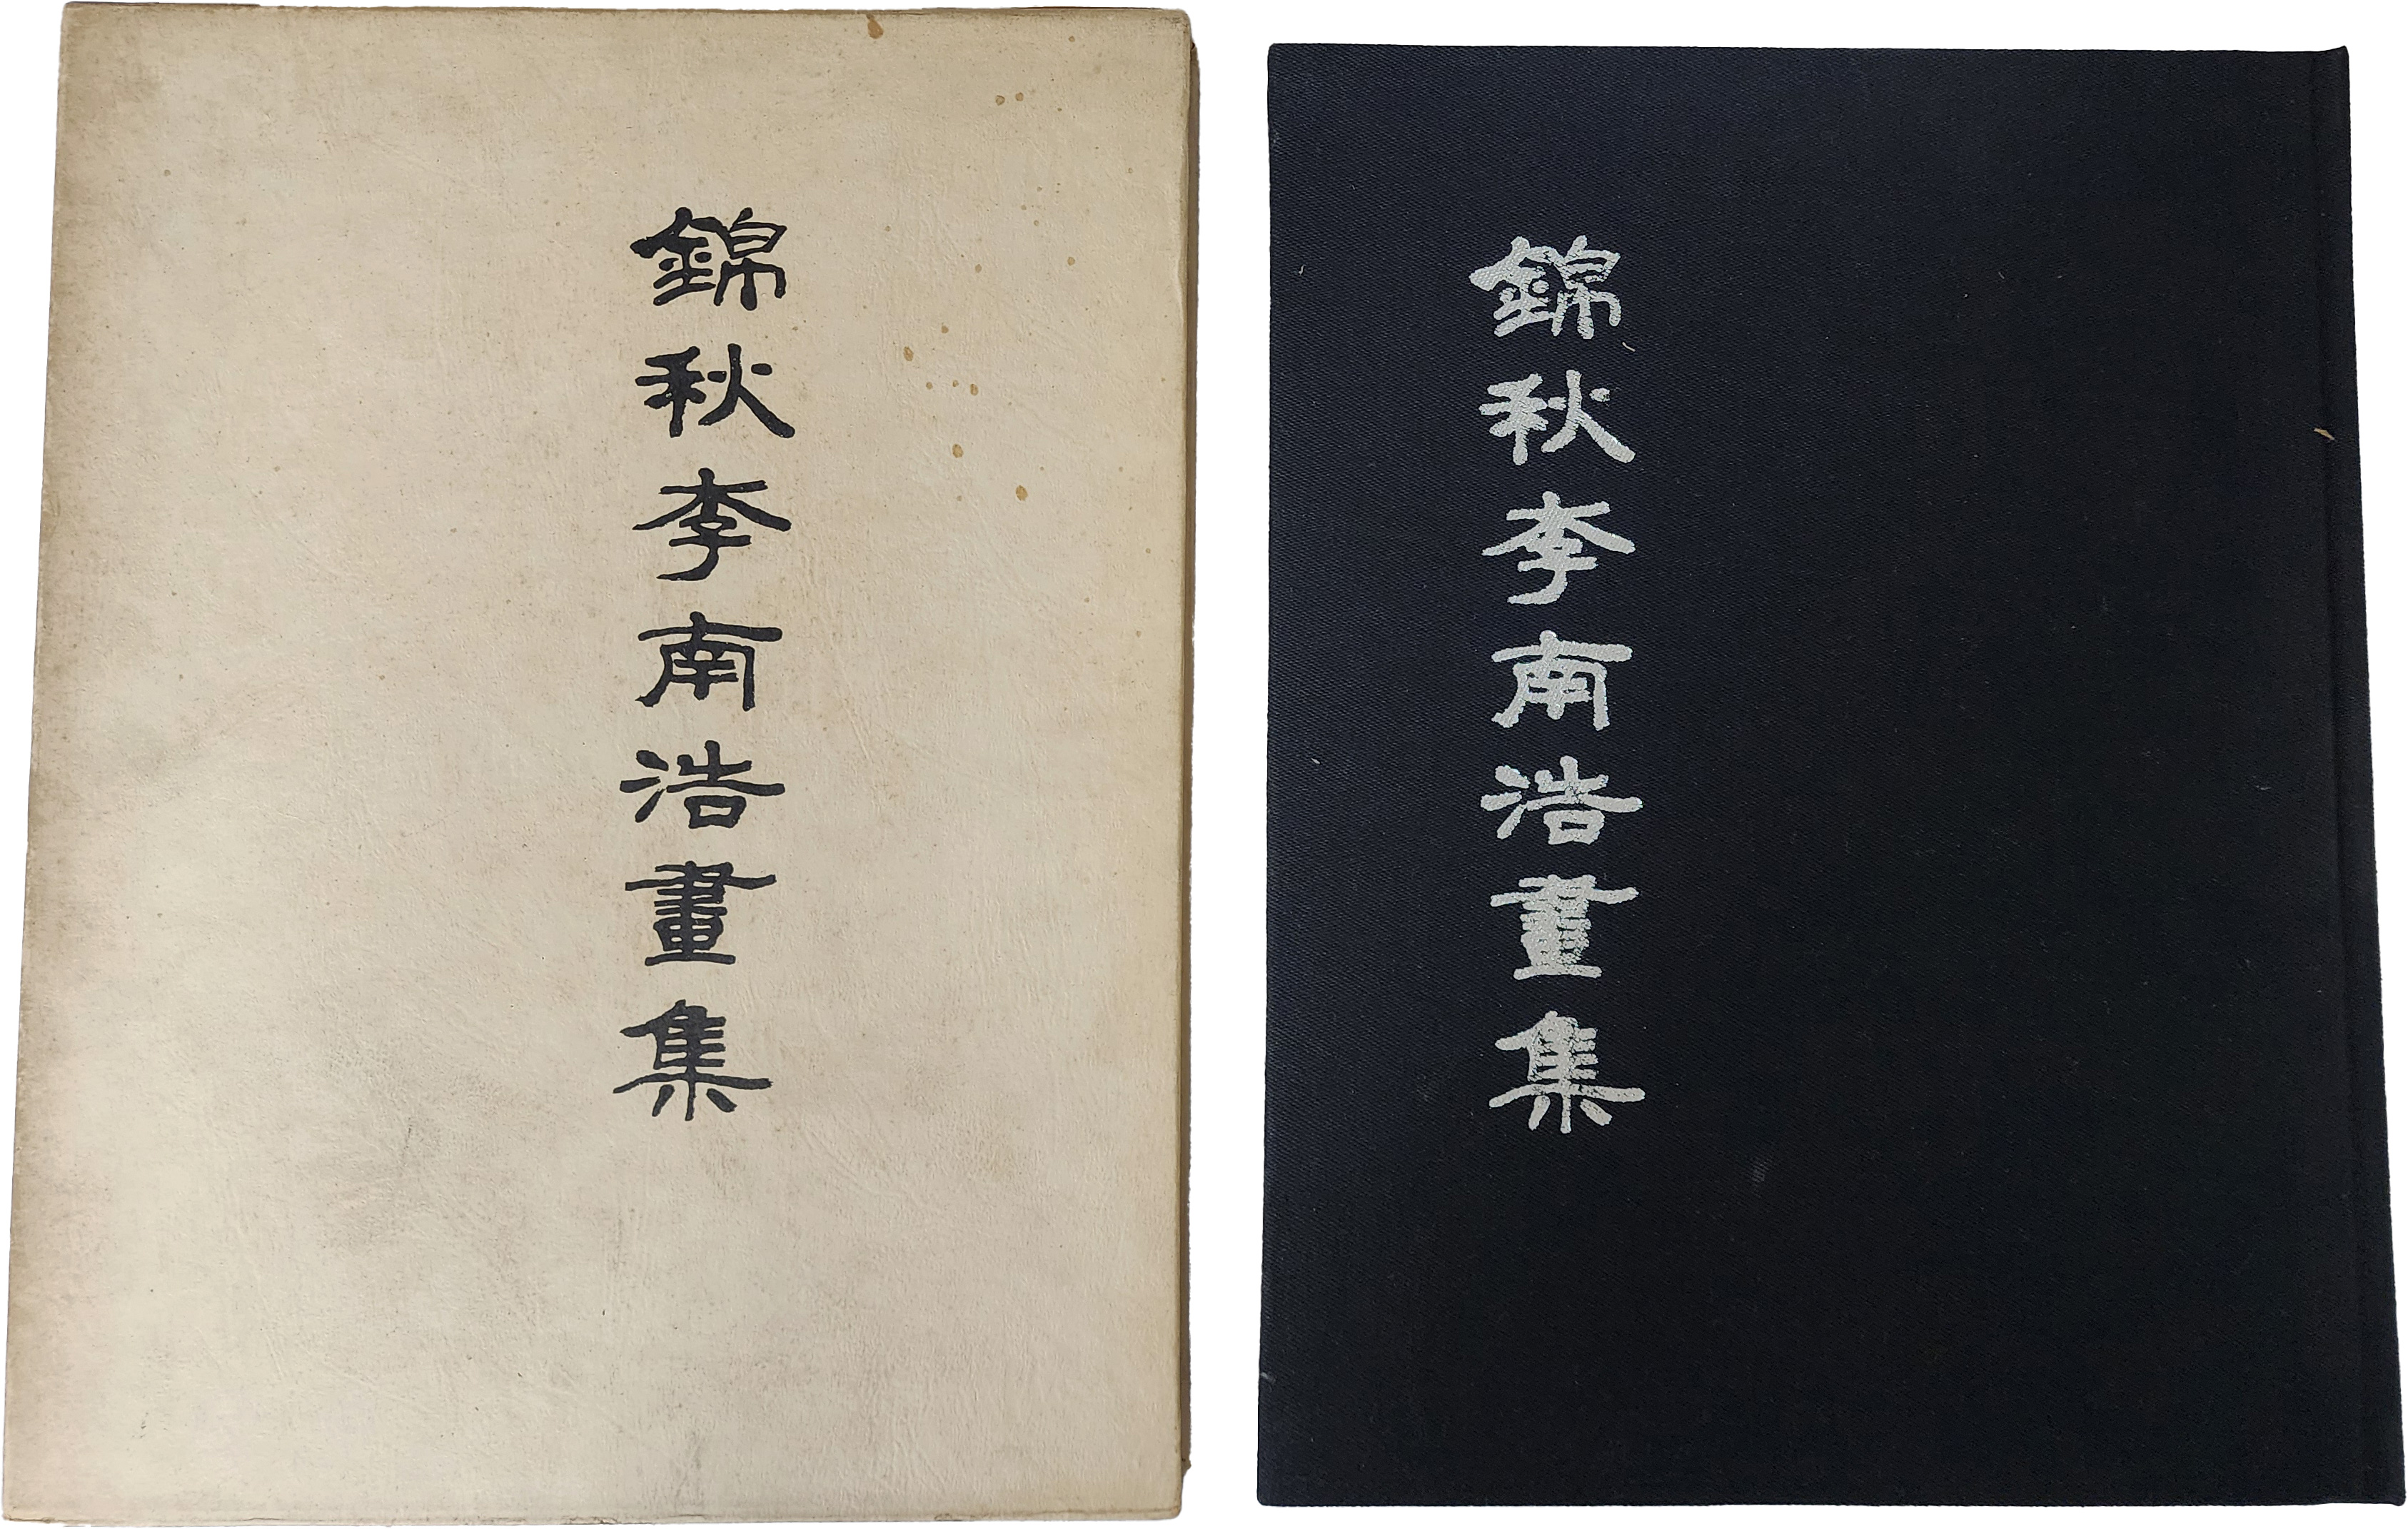 錦秋李南浩畫集
錦秋李南浩畫集